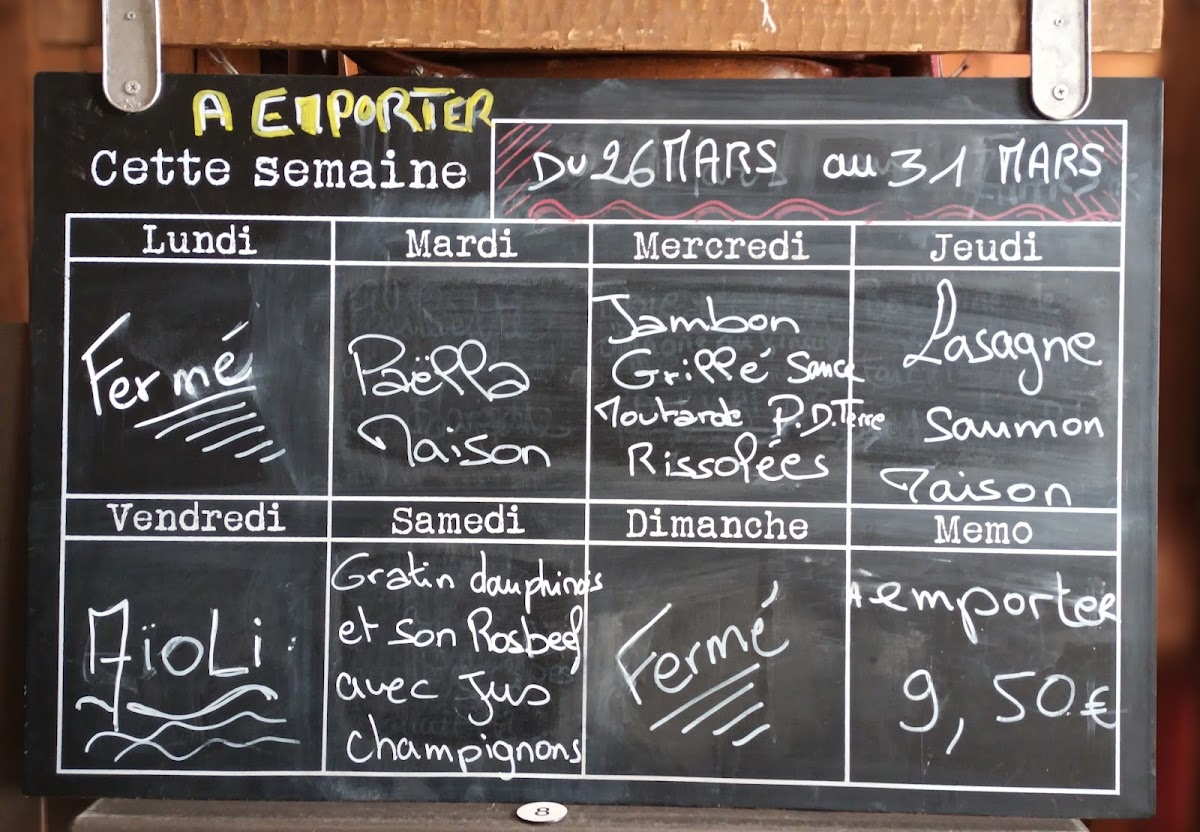 A EMPORTER
Cette semaine
DU 26 MARS au 31 MARS
Lundi
Mardi
Mercredi
Jeudi
Fermé
Paëlla
Maison
Jambon
Grillé Sauce
Moutarde P.D.Terre
Rissolées
Lasagne
Saumon
Maison
Vendredi
Samedi
Dimanche
Memo
AïoLi
Gratin dauphinois
et son Rosbeef
avec Jus
champignons
Fermé
A emporter
9,50€
8